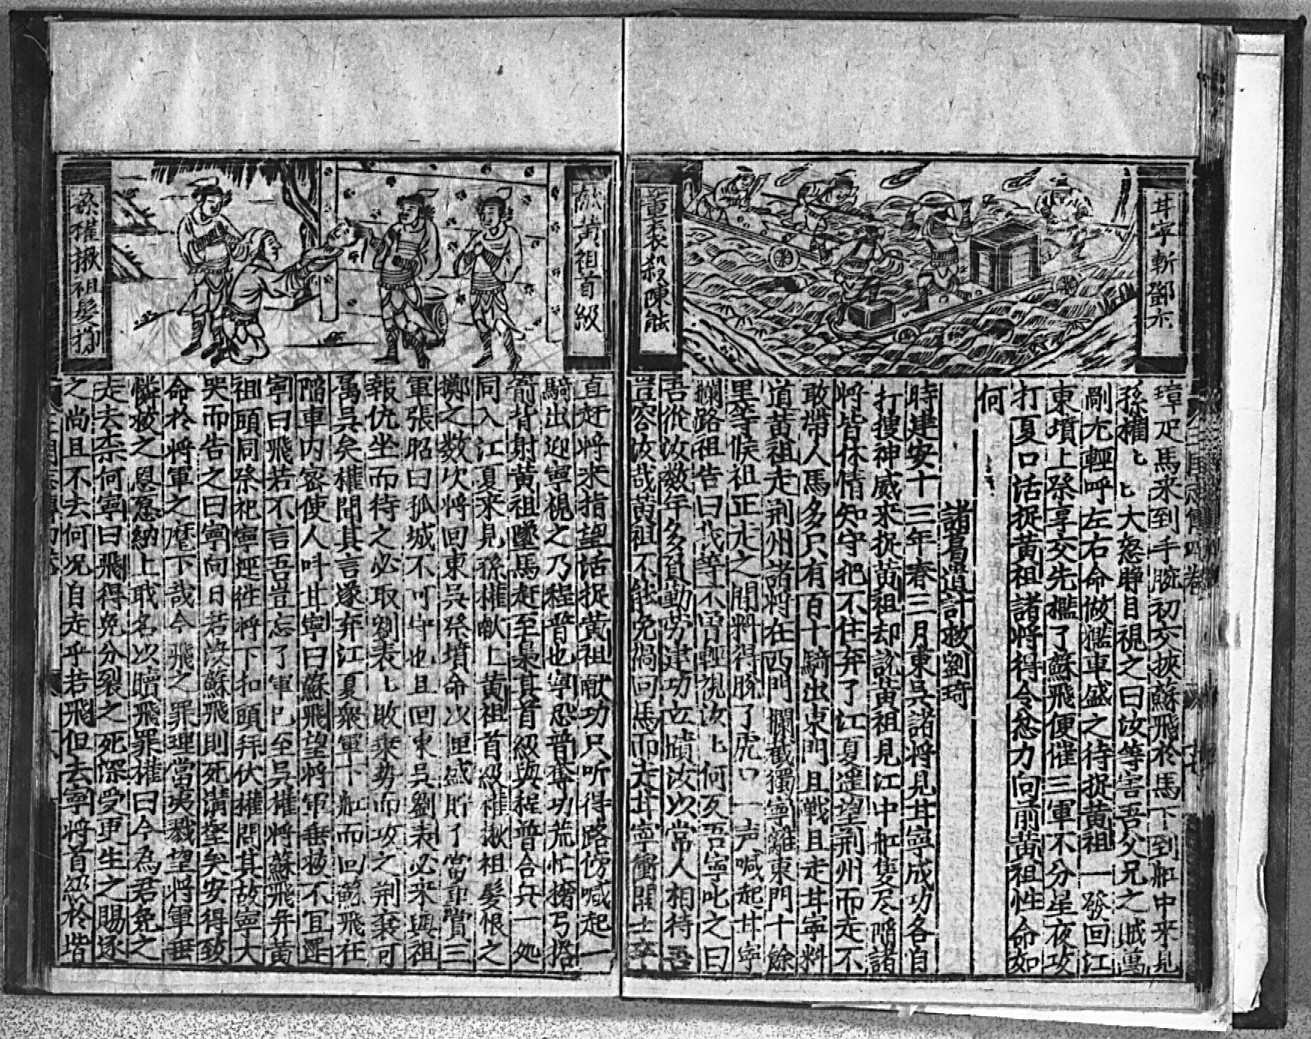 甘寧斬鄧尨
董襲殺陳就
璋疋馬来到手腕初交挾蘇飛於馬下到船中來見
孫權七匕大怒睜目視之曰汝等害吾父兄之賊萬
剮尤輕呼左右命做檻車盛之待捉黃祖一發回江
東墳上祭享交先檻了蘇飛便催三軍不分星夜攻
打夏口活捉黃祖諸將得令忿力向前黃祖性命如
何
諸葛亮計救劉琦
時建安十三年春三月東吳諸將見甘寧成功各自
打摟神威來捉黃祖却說黃祖見江中船隻尽陷諸
將皆休情知守把不住弃了江夏遥望荊州而走不
敢帶人馬多只有百十騎出東門且戰且走甘寧料
道黃祖走荊州諸將在西門攔截獨寧離東門十餘
里等候祖正走之間將得脫了虎口一声喊起甘寧
攔路祖告曰我等不曾輕視汝匕何反吾寧叱之曰
吾從汝数年多負勤劳建功立績汝以常人相待吾
豈容汝哉黃祖不能免禍回馬而走甘寧衝開士卒
献黃祖首級
孫權揪祖髮擲
直赶將來指望活捉黃祖献功只听得路傍喊起一
騎出迎寧視之乃程普也寧恐普奪功荒忙搊弓搭
箭背射黃祖墜馬赶至梟其首級與程普合兵一処
同入江夏來見孫權献上黃祖首級權揪祖髮恨之
擲之数次將回東吳祭墳命以匣盛貯了當重賞三
軍張昭曰孤城不可守也且回東吳劉表必来與祖
報仇坐而待之必取劉表匕敗乘势而攻之荊襄可
萬吳矣權問其言遂弃江夏衆軍下船而回蘇飛在
陷車内密使人叫甘寧曰蘇飛望將軍垂救不宜遲
寧曰飛若不言吾豈忘了軍已至吳權將蘇飛并黃
祖頭同祭祀寧逕往將下扣頭拜伏權問其故寧大
哭而告之曰寧向日若没蘇飛則死溝壑矣安得致
命於將軍之麾下哉今飛之罪理當夷戮望將軍垂
憐救之恩怨納上戢名以贖飛罪權曰今為君免之
走去柰何寧曰飛得免分裂之死深受更生之賜逐
之尚且不去何况自走乎若飛但去寧將首級於堦